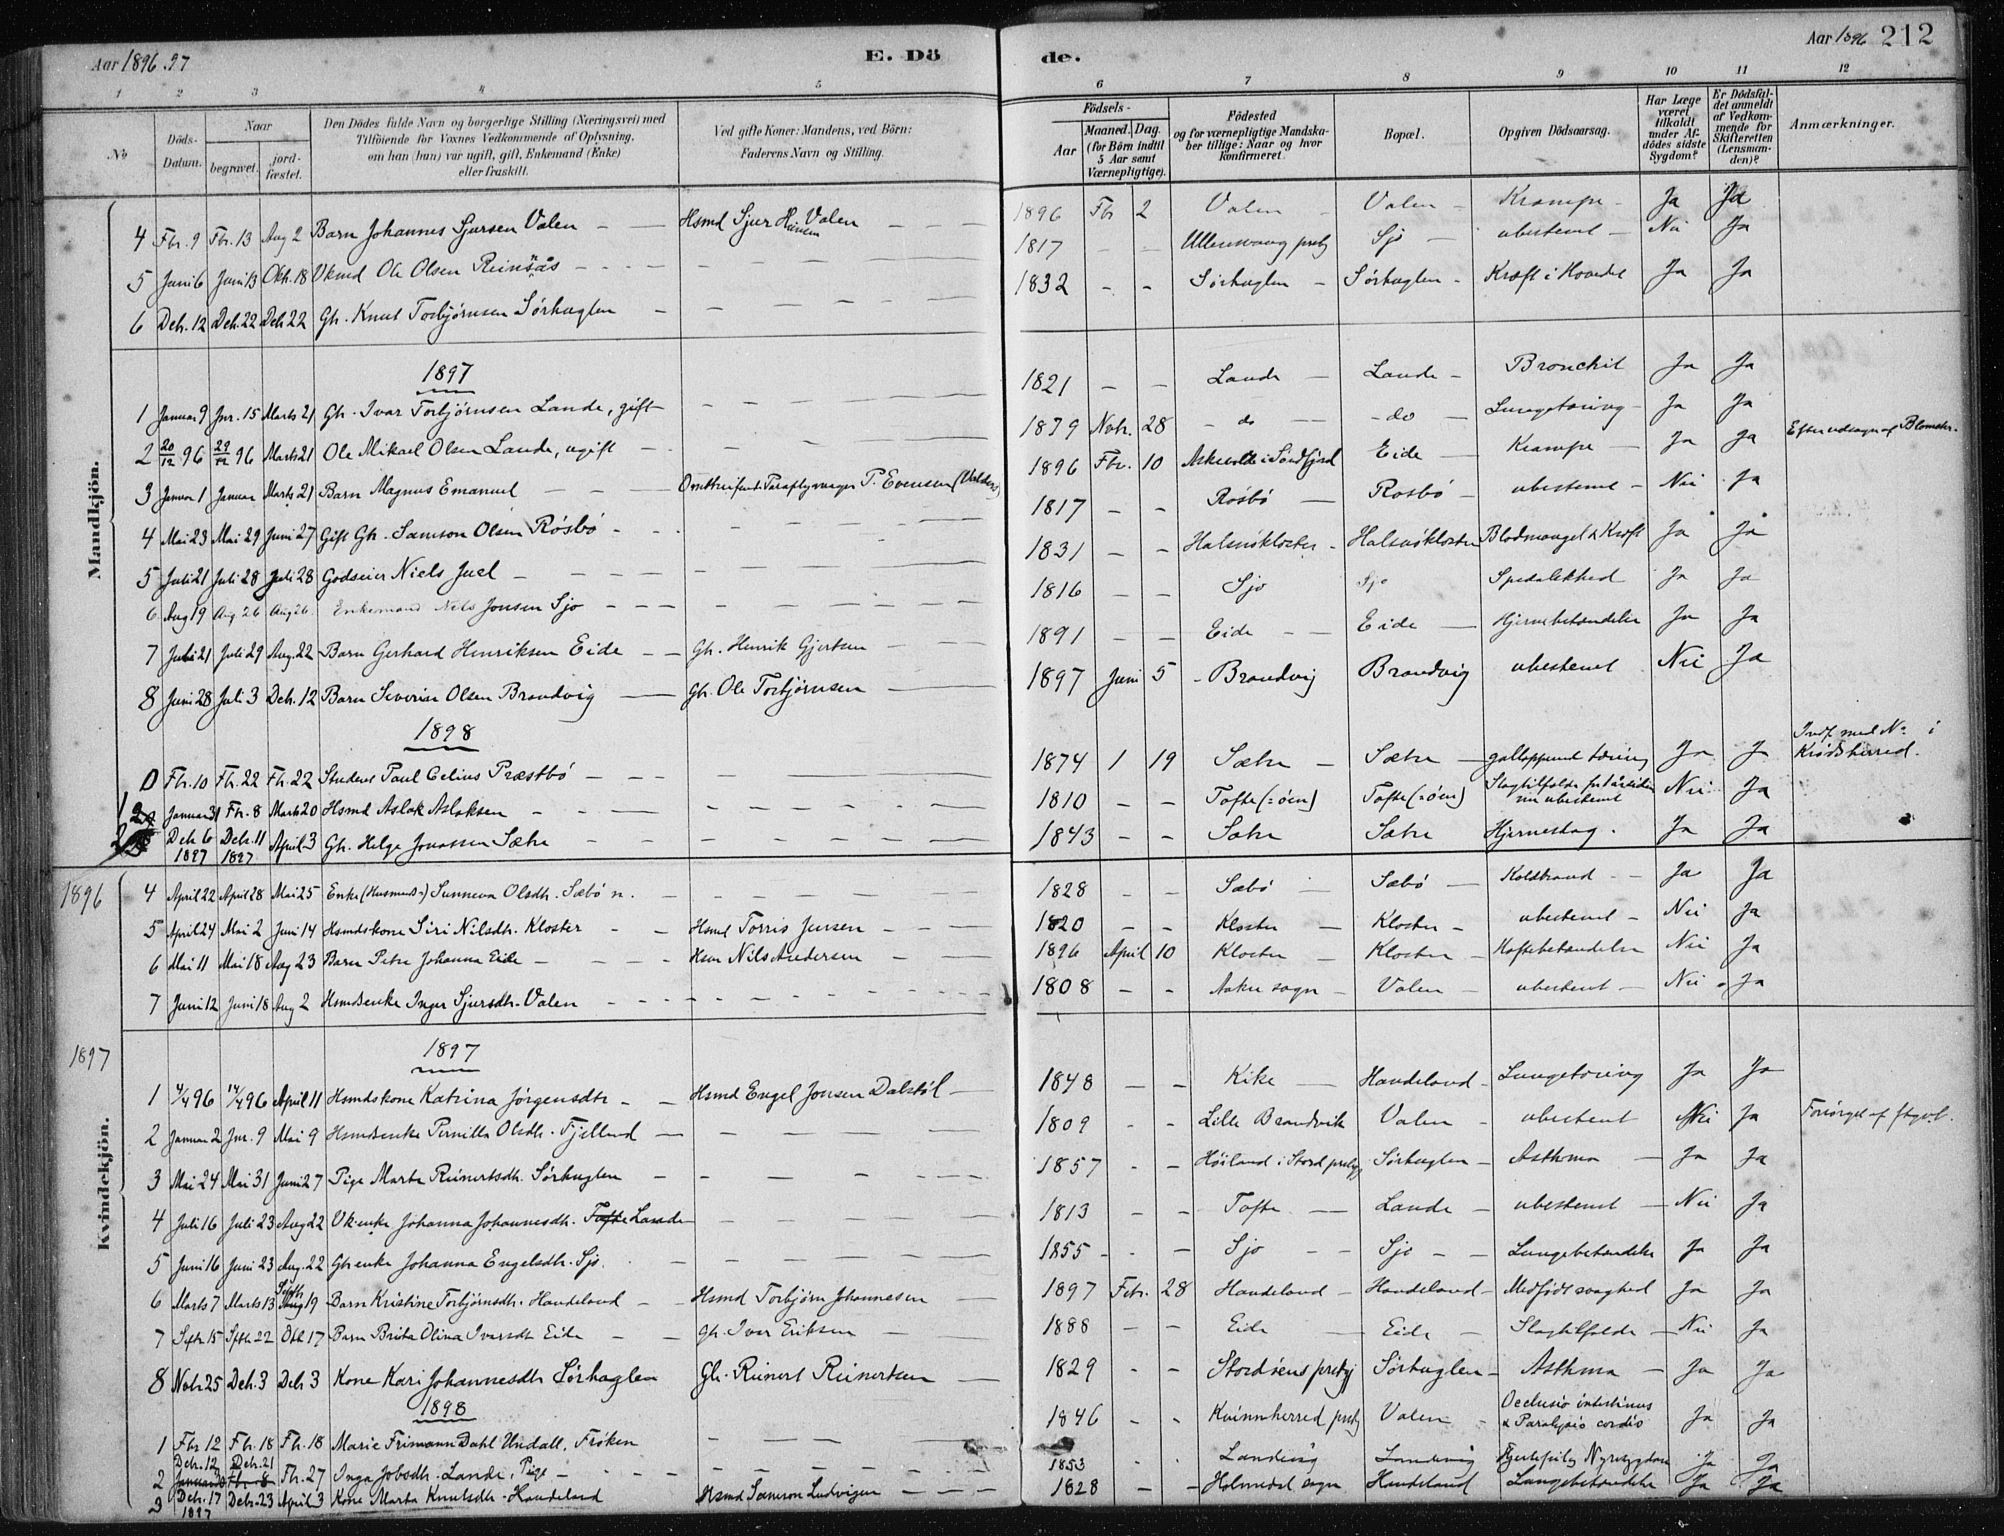 Aar 1896.97 E. Dö de. Aar 1896 212
1 2 3 4 5 6 7 8 9 10 11 12
No
Döds-Datum.
Naar
begravet.
jordfæstet.
Den Dödes fulde Navn og borgerlige Stilling (Næringsvei) med
Tilföiende for Voxnes Vedkommende af Oplysning,
om han (hun) var ugift, gift, Enkemand (Enke)
eller fraskilt.
Ved gifte Koner: Mandens, ved Börn:
Faderens Navn og Stilling.
Födsels-
Aar
Maaned. Dag.
(for Börn indtil
5 Aar samt
Værnepligtige).
Födested
og for værnepligtige Mandskaber tillige: Naar og hvor
konfirmeret.
Bopæl.
Opgiven Dödsaarsag.
Har Læge
været
tilkaldt
under Afdödes sidste
Sygdom?
Er Dödsfaldet anmeldt
af Vedkommende for
Skifteretten
(Lensmanden)?
Anmærkninger.
Mandkjön.
4 Fbr. 9 Fbr. 13 Aug 2 Barn Johannes Sjursen Valen Hsmd Sjur Valen 1896 Fbr 2 Valen Valen Krampe Ja Ja
5 Juni 6 Juni 13 Okt. 18 Vkmd Ole Olsen Reinsås 1817 Ullensvang prstg Sjo ubestemt Nei Ja
6 Deb. 12 Deb. 22 Deb 22 Gb. Knut Torbjörnsen Sörhuglen 1832 Sörhuglen Sörhuglen Kræft i Hovedet Ja Ja
1897
1 Januar 9 Jnr. 15 Marts 21 Gb. Ivar Torbjörnsen Lande, gift 1821 Lande Lande Bronchit Ja Ja
2 20/12 96 29/12 96 Marts 21 Ole Mikael Olsen Lande, ugift 1879 Nvbr. 28 do do Lungetæring Ja Ja
3 Januar 1 Januar Marts 21 Barn Magnus Emanuel Paraplymager P. Evensen 1896 Fbr. 10 Askevold i Söndfjord Eide Krampe Ja Ja Efter udsagn af Blomster.
4 Mai 23 Mai 29 Juni 27 Gift Gb. Samson Olsen Rösbö 1817 Rösbö Rosbö ubestemt Nei Ja
5 Juli 21 Juli 28 Juli 28 Godseier Niels Juel 1831 Halsnökloster Halsnökloster Blodmangel & Kræft Ja Ja
6 Aug 19 Aug 26 Aug 26 Enkemand Nils Jonsen Sjo 1816 Sjo Sjo Spedalskhed Ja Ja
7 Juli 21 Juli 29 Aug. 22 Barn Gerhard Henriksen Eide Gb. Henrik Gjertsen 1891 Eide Eide Hjernebetændelse Ja Ja
8 Juni 28 Juli 3 Deb. 12 Barn Severin Olsen Brandvig Gb. Ole Torbjörnsen 1897 Juni 5 Brandvig Brandvig ubestemt Nei Ja
1898
0 Fbr. 10 Fb. 22 Fb. 22 Student Paul Celius Præstbö 1874 1 19 Sætre Sætre galloppend tæring Ja Ja Indf. med No i Krödsherred.
1 Januar 31 Fb. 8 Marts 20 Hsmd Aslak Aslaksen 1810 Tofte (:öen) Tofte (:öen) Slagtilfælde ubestemt Nei Ja
2 Deb 6 1897 Deb. 11 1897 April 3 Gb. Helge Jonassen Sætre 1843 Sætre Sætre Hjerneslag. Ja Ja
Kvindekjön.
1896
4 April 22 April 28 Mai 25 Enke (Husmands-) Sunneva Olsdtr. Sæbö n. 1828 Sæbö Sæbö Koldbrand Ja Ja
5 April 24 Mai 2 Juni 14 Hsmdskone Siri Nilsdtr. Kloster Hsmd Torris Jensen 1820 Kloster Kloster ubestemt Nei Ja
6 Mai 11 Mai 18 Aug 23 Barn Petra Johanna Eide Hsm Nils Andersen 1896 April 10 Kloster Kloster Hoftebetændelse Nei Ja
7 Juni 12 Juni 18 Aug 2 Hsmdsenke Inger Sjursdtr. Valen 1808 sogn Valen ubestemt Nei Ja
1897
1897
1 4/4 96 14/4 96 April 11 Hsmdskone Katrina Jörgensdtr Hsmd Engel Jonsen Dalstöl 1848 Kike Handeland Lungetæring Ja Ja
2 Januar 2 Jnr. 9 Mai 9 Hsmdsenke Pernilla Olsdtr. Fjelland 1809 Lille Brandvik Valen ubestemt Nei Ja Forsörget af ftgv.
3 Mai 24 Mai 31 Juni 27 Pige Marta Reinertsdtr. Sörhuglen 1857 Höiland i Stord prstgj Sörhuglen Asthma Ja Ja
4 Juli 16 Juli 23 Aug 22 Vk.enke Johanna Johannesdtr. Tofte Lande 1813 Tofte Lande ubestemt Nei Ja
5 Juni 16 Juni 23 Aug. 22 Gb enke Johanna Engelsdtr. Sjo 1855 Sjo Sjo Lungebetændelse Ja Ja
6 Marts 7 Marts 13 Septb. 19 Barn Kristine Torbjörnsdtr. Handeland Hsmd Torbjörn Johannesen 1897 Febr. 28 Handeland Handeland Medfödt svaghed Ja Ja
7 Sptr. 15 Sptbr 22 Okt 17 Barn Brita Olina Ivarsdtr Eide Gb. Ivar Eriksen 1888 Eide Eide Slagtilfælde Nei Ja
8 Nvbr. 25 Deb. 3 Deb 3 Kone Kari Johannesdtr Sörhuglen Gb. Reinert Reinertsen 1829 Stordöens prstgj Sörhuglen Asthma Ja Ja
1898
1 Fbr 12 Fb. 18 Fb. 18 Marie Frimann Dahl Undall, Fröken 1846 Kvinnherred prstg Valen Occlusio intestinus & Paralysis cordis Ja Ja
2 Deb. 12 Deb. 21 Fb. 27 Inga Jobsdtr. Lande, Pige 1853 Landevig Landevig Nyresygdom Ja Ja
3 Deb. 17 1897 Deb. 23 April 3 Kone Marta Knutsdtr. Handeland Hsmd Samson Ludvigsen 1828 Holmedal sogn Handeland Lungebetændelse Ja Ja